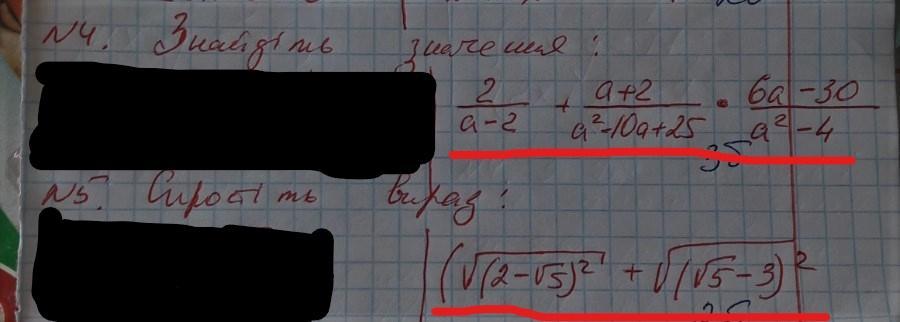 N4. Знайдіть значення:
2/(a-2) + (a+2)/(a²-10a+25) · (6a-30)/(a²-4)
35
N5. Спростіть вираз:
(√(2-√5)² + √(√5-3)²